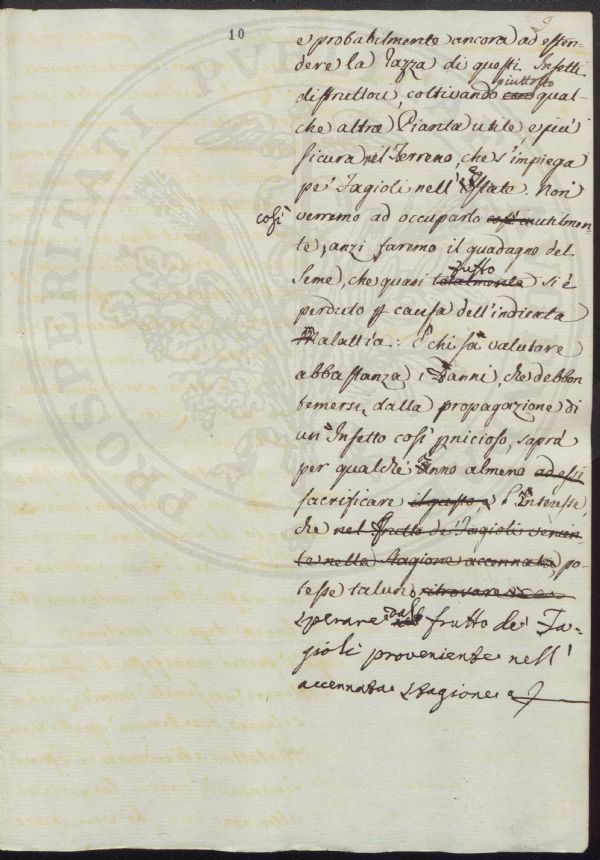 10
e probabilmente ancora ad estin-
dere la razza di questi Insetti
distruttori, coltivando piuttosto qual-
che altra Pianta utile, e più
sicura nel Terreno, che s'impiega
pe' Fagioli nell'Estate. Non
così
verremo ad occuparlo così inutilmen-
te, anzi faremo il guadagno del
Seme, che quasi totalmente tutto si è
perduto p causa dell'indicata
Malattia: e chi sa valutare
abbastanza i Danni, che debbon
temersi dalla propagazione di
un Insetto così pnicioso, saprà
per qualche Anno almeno ad essi
sacrificare il gusto, e l'Interesse,
che nel frutto de' Fagioli venien-
te nella Stagione accennata, po-
tesse taluno ritrovare
sperare dal frutto de' Fa-
gioli proveniente nell'
accennata Stagione
PROSPERITATI PUBLICAE